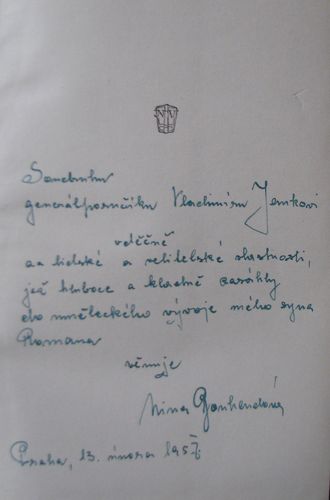 Soudruhu
generálporučíku Vladimíru Jankovi
vděčně
za lidské a velitelské vlastnosti,
jež hluboce a kladně zasáhly
do uměleckého vývoje mého syna
Romana
věnuje
Nina
Praha, 13. února 1957.